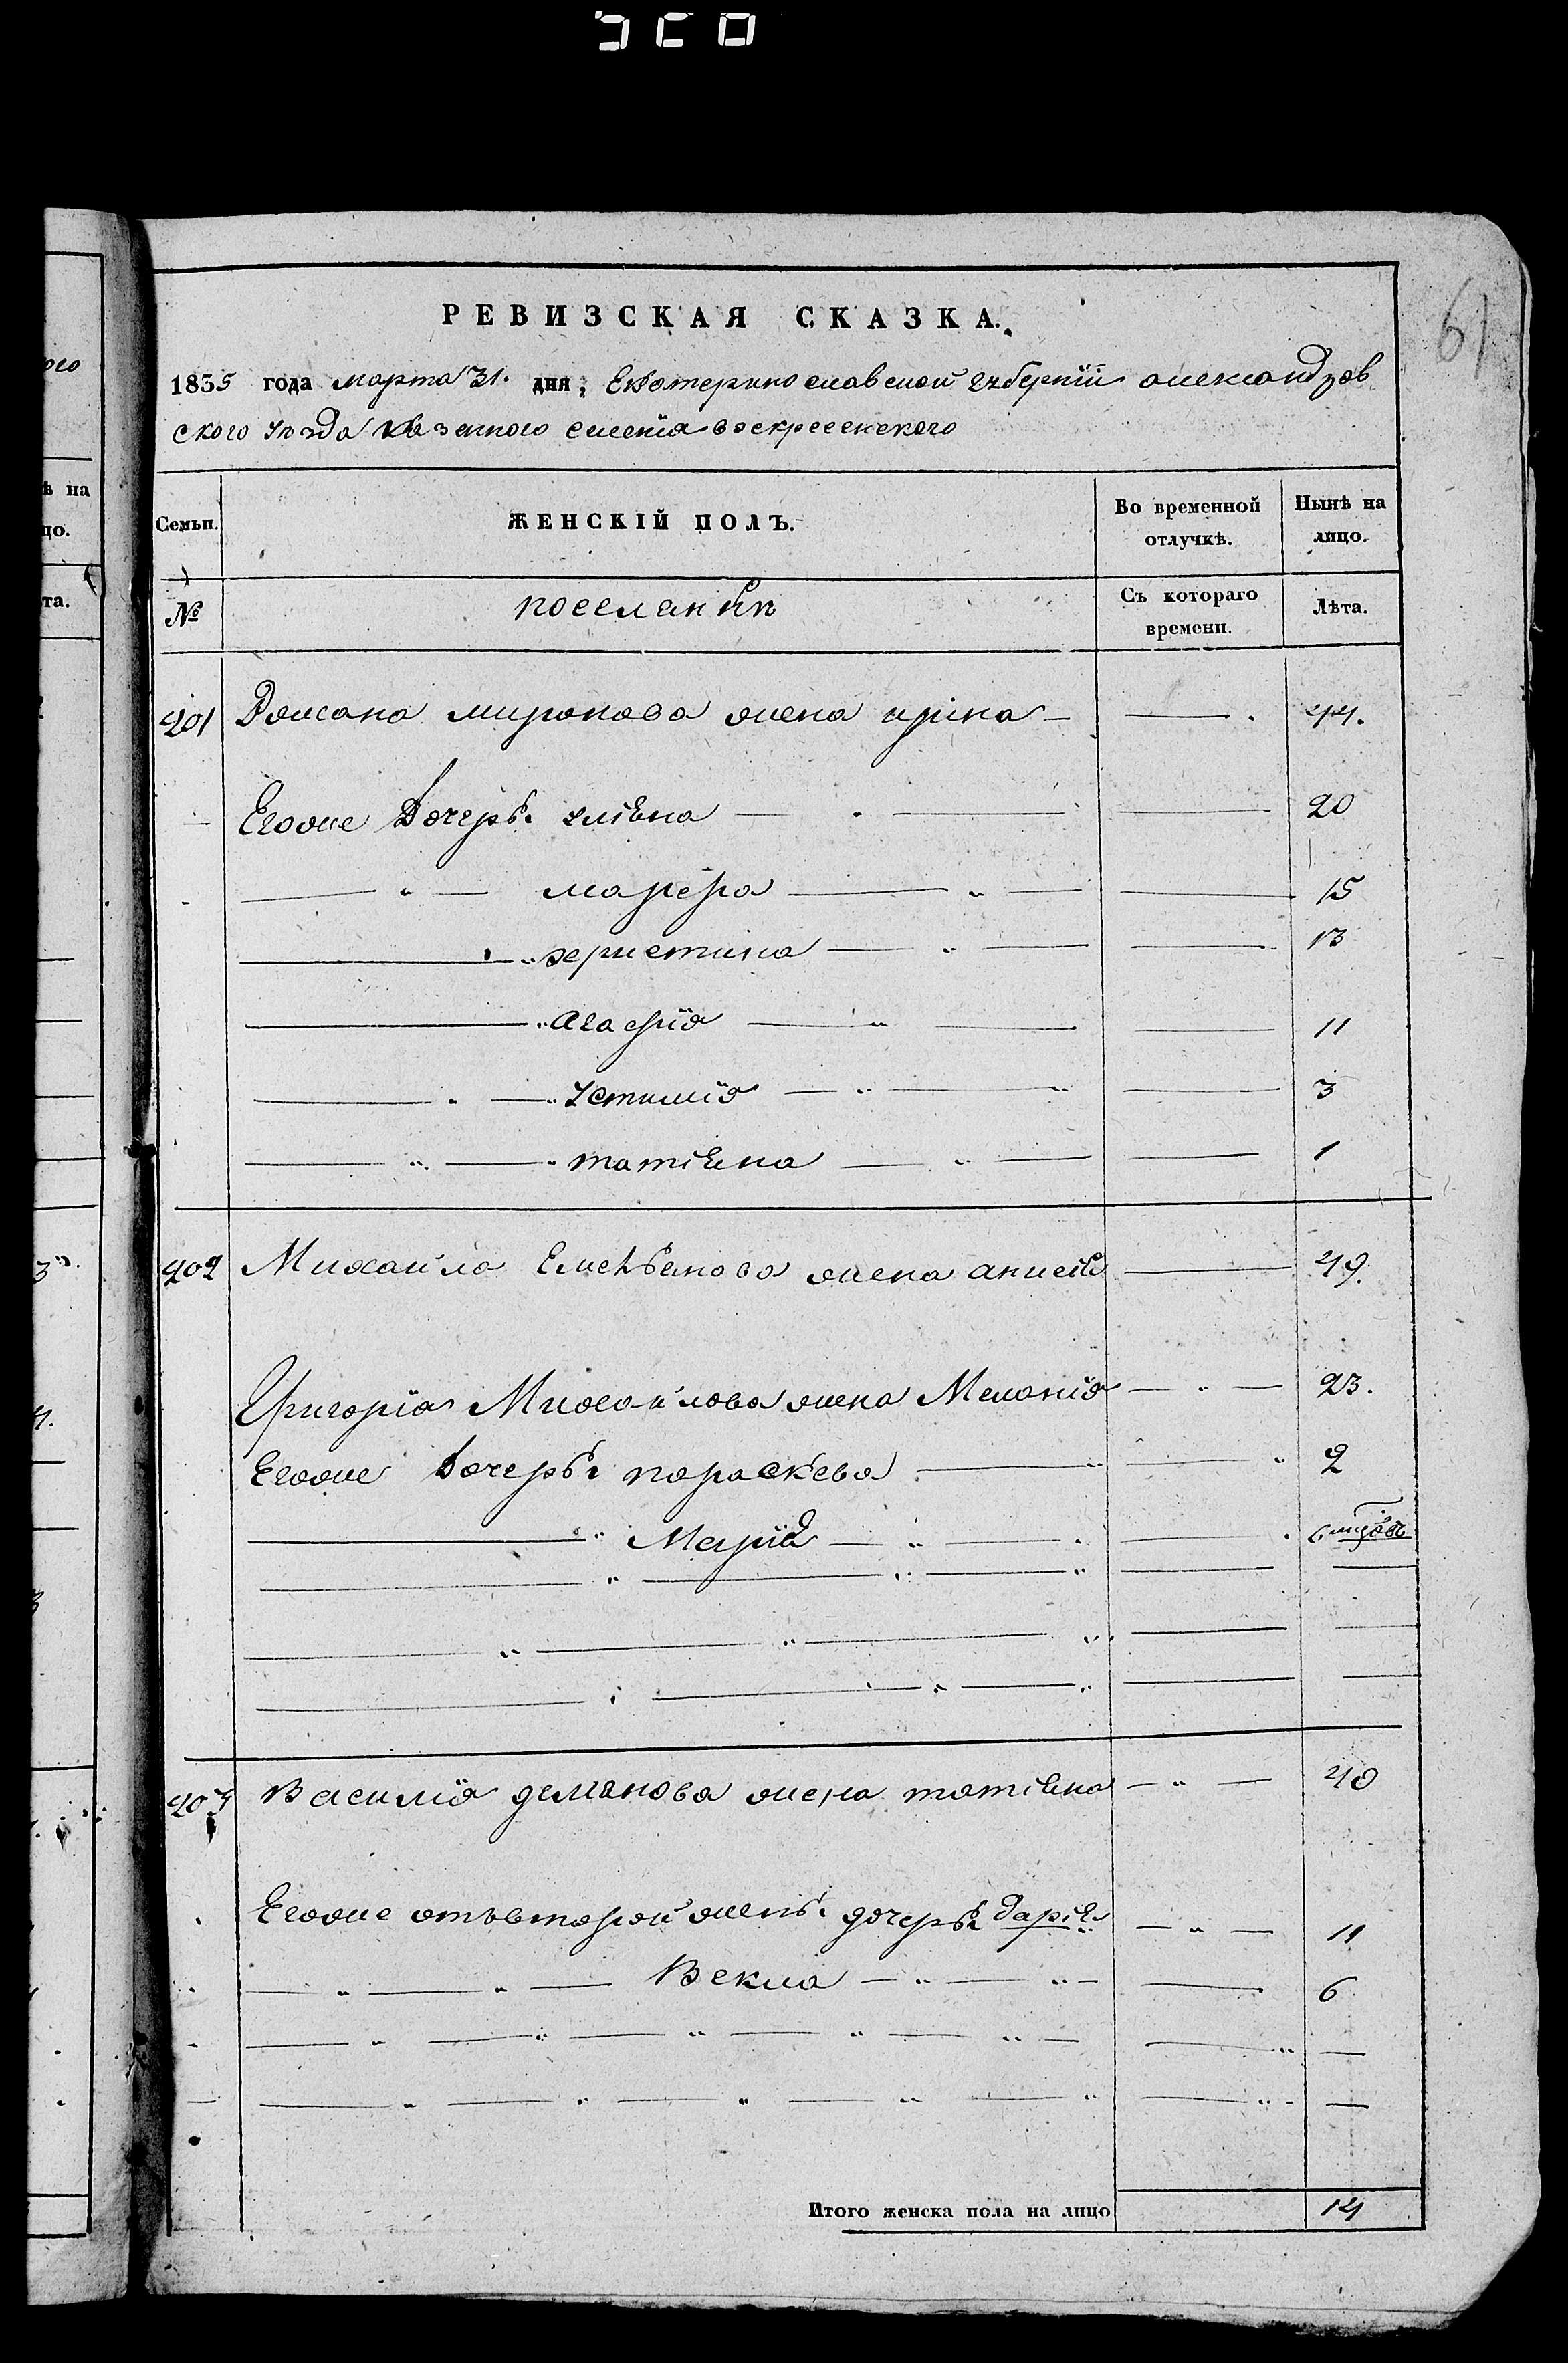 61
РЕВИЗСКАЯ СКАЗКА.
1835 года марта 31. дня, Екатеринославской губернїи александров
ского уѣзда казенного селенïя воскресенского
Семьи. ЖЕНСКІЙ ПОЛЪ. Во временной отлучкѣ. Нынѣ на лицо.
№ поселянкѣ Съ котораго времени. Лѣта.
201 Романа миронова жена ирина 44.
Егоже дочерѣ улїяна 20
марфра 15
херистина 13
Агафїя 11
Устимїя 3
татїяна 1
202 Михайла Емельянова жена анисїя 49.
Григорїя Михайлова жена Меланїя 23.
Егоже дочерѣ параскева 2
Марїя 6 мцовъ
203 Василїя демянова жена татїяна 40
Егоже отъвторой женѣ дочерѣ дарїя 11
Векла 6
Итого женска пола на лицо 14